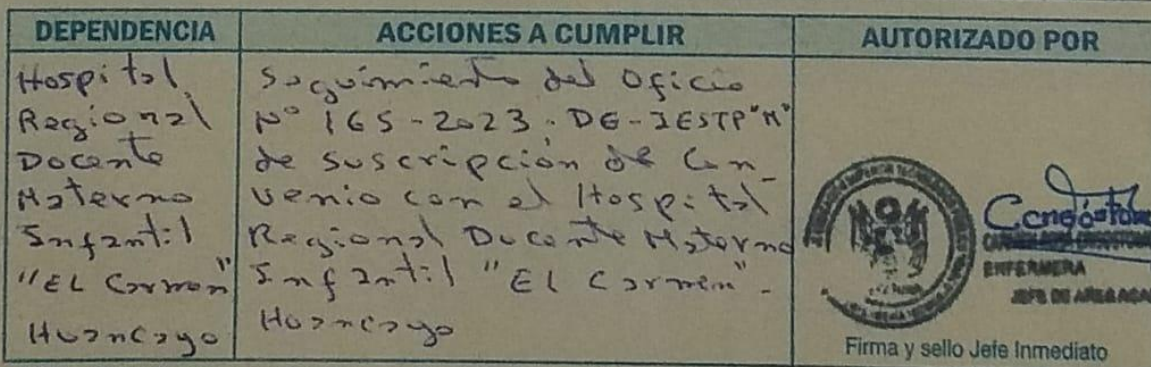 DEPENDENCIA
ACCIONES A CUMPLIR
AUTORIZADO POR
Hospital
Regional
Docente
Materno
Infantil
"EL Carmen"
Huancayo
Seguimiento del Oficio
N° 165-2023-DG-IESTP"M"
de suscripción de Con_
venio con el Hospital
Regional Docente Materno
Infantil "El Carmen"-
Huancayo
ENFERMERA
JEFE DE AREA ACA
Firma y sello Jefe Inmediato